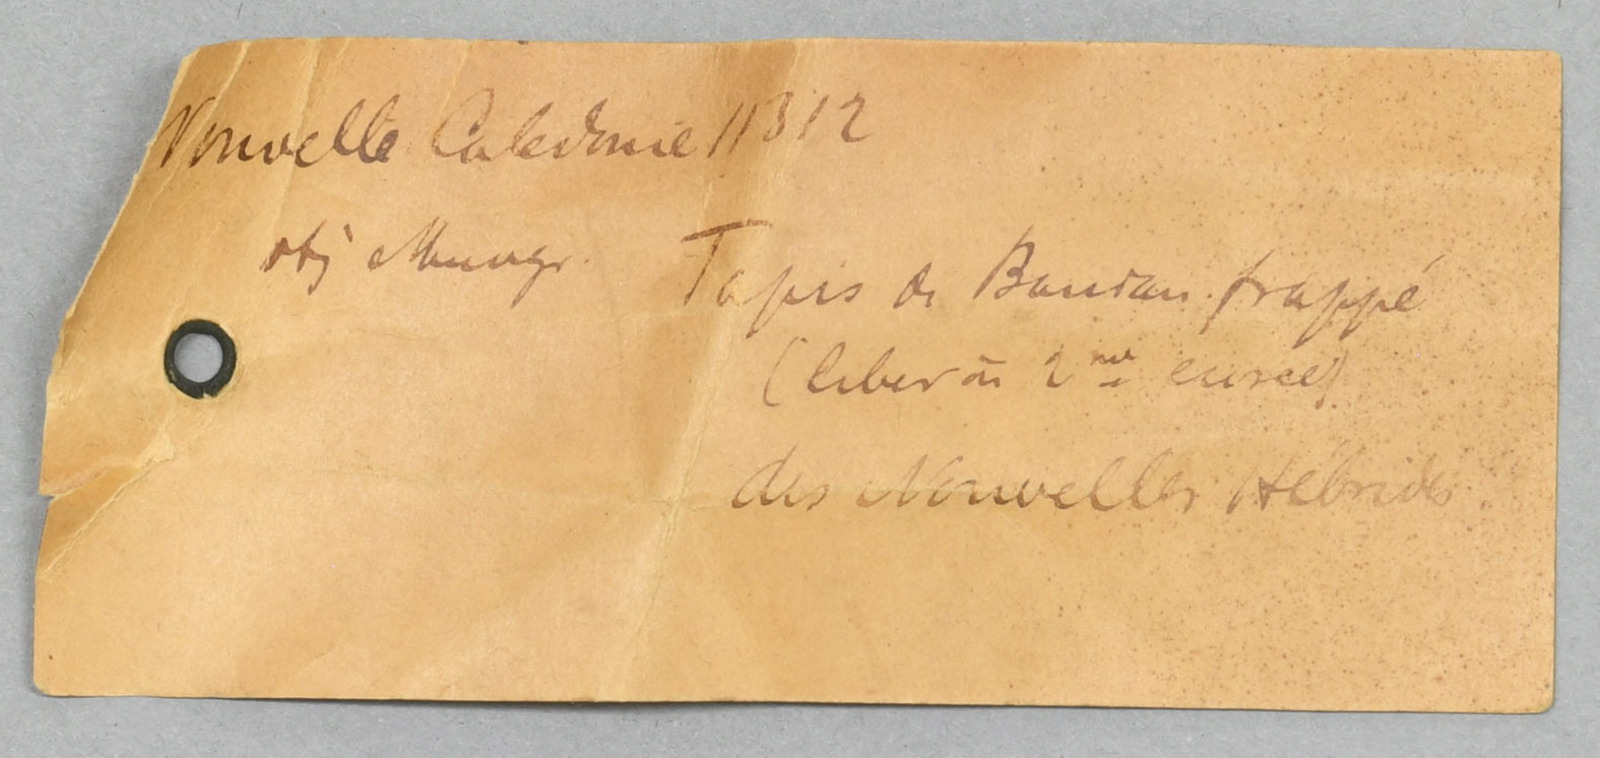 Nouvelle Caledonie 11312
obj Tapis de Banian frappé
(liber ou 2me écorce)
des Nouvelles Hébrides